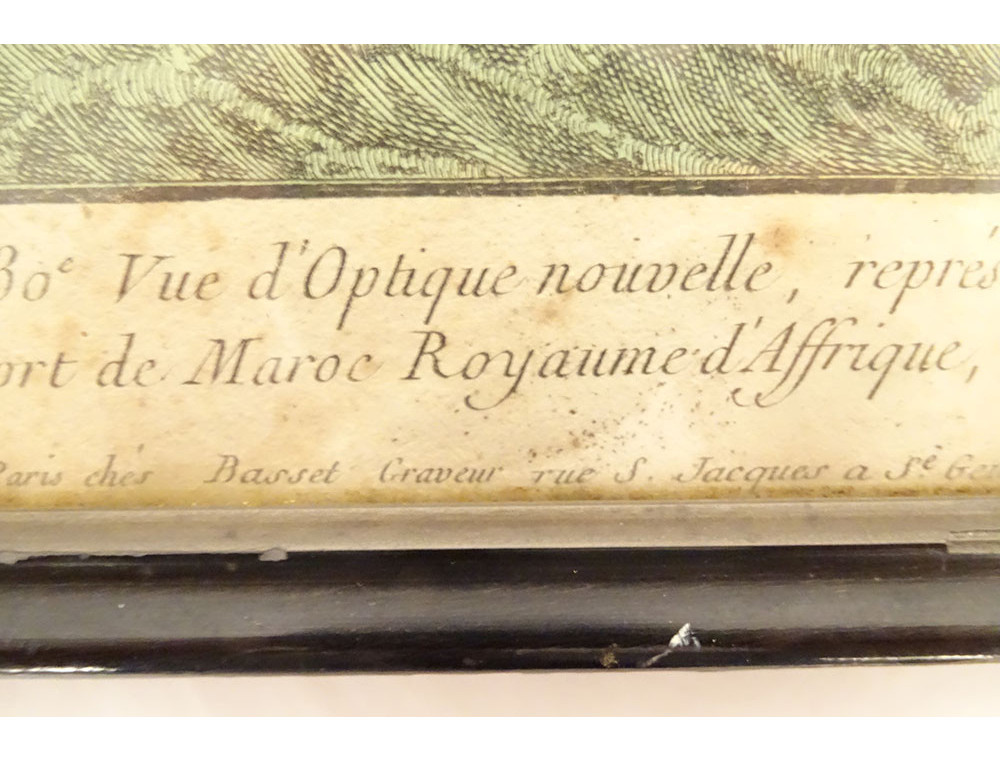 80e Vue d'Optique nouvelle, représ
ort de Maroc Royaume d'Affrique,
Paris chés Basset Graveur rue S. Jacques a Ste Gen